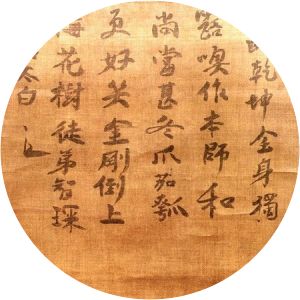 乾坤全身獨
露喚作本師和
尚當甚冬瓜茄瓠
更好笑金剛倒上
梅花樹徒弟智琛
太白